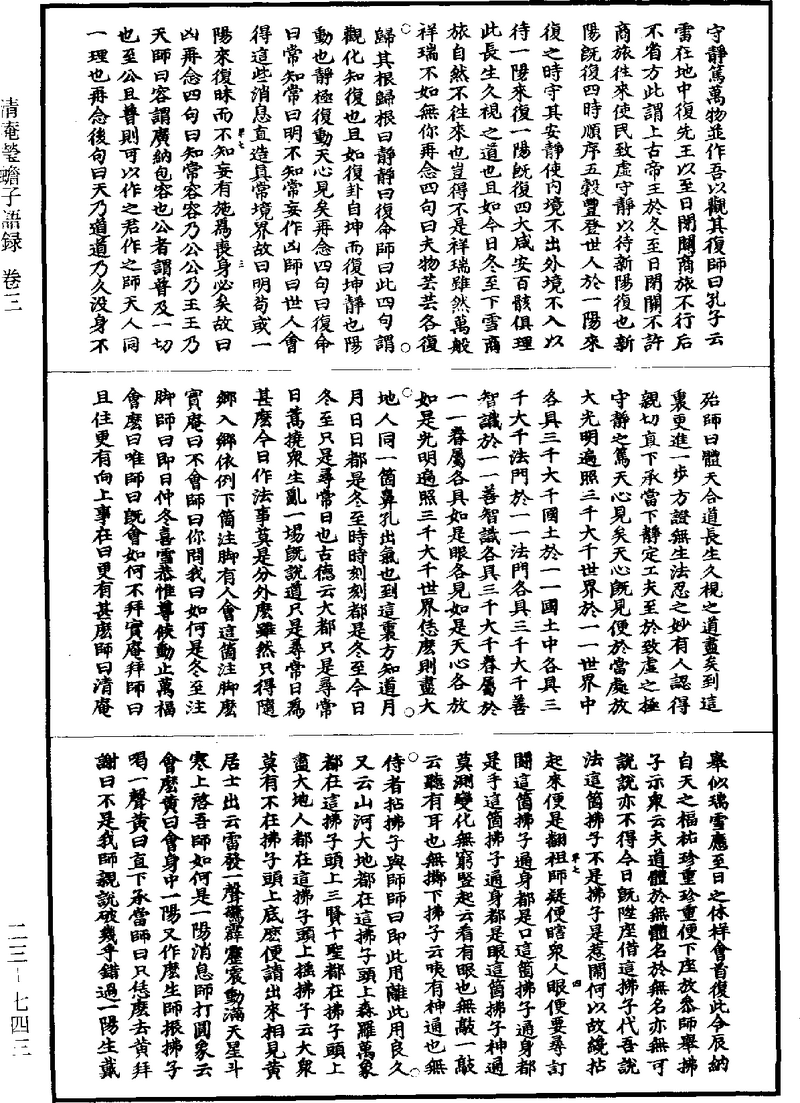 守靜篤萬物並作吾以觀其復師曰孔子云
雷在地中復先王以至日閉關商旅不行后
不省方此謂上古帝王於冬至日閉關不許
商旅往來使民致虛守靜以待新陽復也新
陽旣復四時順序五穀豐登世人於一陽來
復之時守其安靜使內境不出外境不入以
待一陽來復一陽旣復四大咸安百骸俱理
此長生久視之道也且如今日冬至下雪商
旅自然不往來也豈得不是祥瑞雖然萬般
祥瑞不如無你再念四句曰夫物芸芸各復
歸其根歸根曰靜靜曰復命師曰此四句謂
觀化知復也且如復卦自坤而復坤靜也陽
動也靜極復動天心見矣再念四句曰復命
曰常知常曰明不知常妄作凶師曰世人會
得這些消息直造真常境界故曰明苟或一
陽來復昧而不知妄有施爲喪身必矣故曰
凶再念四句曰知常容容乃公公乃王王乃
天師曰容謂廣納包容也公者謂普及一切
也至公且普則可以作之君作之師天人同
一理也再念後句曰天乃道道乃久没身不
殆師曰體天合道長生久視之道盡矣到這
裏更進一步方證無生法忍之妙有人認得
親切直下承當下靜定工夫至於致虛之極
守靜之篤天心見矣天心旣見便於當處放
大光明遍照三千大千世界於一一世界中
各具三千大千國土於一一國土中各具三
千大千法門於一一法門各具三千大千善
智識於一一善智識各具三千大千眷屬於
一一眷屬各具如是眼各見如是天心各放
如是光明遍照三千大千世界恁麽則盡大
地人同一箇鼻孔出氣也到這裏方知道月
月日日都是冬至時時刻刻都是冬至今日
冬至只是尋常日也古德云大都只是尋常
日蒿撓衆生亂一場旣說道只是尋常日爲
甚麽今日作法事莫是分外麽雖然只得隨
鄉入鄉依例下箇注脚有人會這箇注脚麽
實庵曰不會師曰你問我曰如何是冬至注
脚師曰即日仲冬喜雪恭惟尊候動止萬福
會麽曰唯師曰旣會如何不拜實庵拜師曰
且住更有向上事在曰更有甚麽師曰清庵
舉似瑞雪應至日之休祥會首復此令辰納
自天之福祐珍重珍重便下座放參師舉拂
子示衆云夫道體於無體名於無名亦無可
說說亦不得今日旣陞座借這拂子代吾說
法這箇拂子不是拂子是惹閙何以故纔拈
起來便是翻祖師疑便瞎衆人眼便要尋訂
鬭這箇拂子通身都是口這箇拂子通身都
是手這箇拂子通身都是眼這箇拂子神通
莫測變化無窮竪起云看有眼也無敲一敲
云聽有耳也無擲下拂子云咦有神通也無
侍者拈拂子與師師曰即此用離此用良久
又云山河大地都在這拂子頭上森羅萬象
都在這拂子頭上三賢十聖都在拂子頭上
盡大地人都在這拂子頭上搖拂子云大衆
莫有不在拂子頭上底麽便請出來相見黄
居士出云雷發一聲驚霹靂震動滿天星斗
寒上啓吾師如何是一陽消息師打圓象云
會麽黄曰會身中一陽又作麽生師振拂子
喝一聲黄曰直下承當師曰只恁麽去黄拜
謝曰不是我師親說破幾乎錯過一陽生戴
第七 三
第七 四
清庵瑩蟾子語録 卷三
二三－七四三